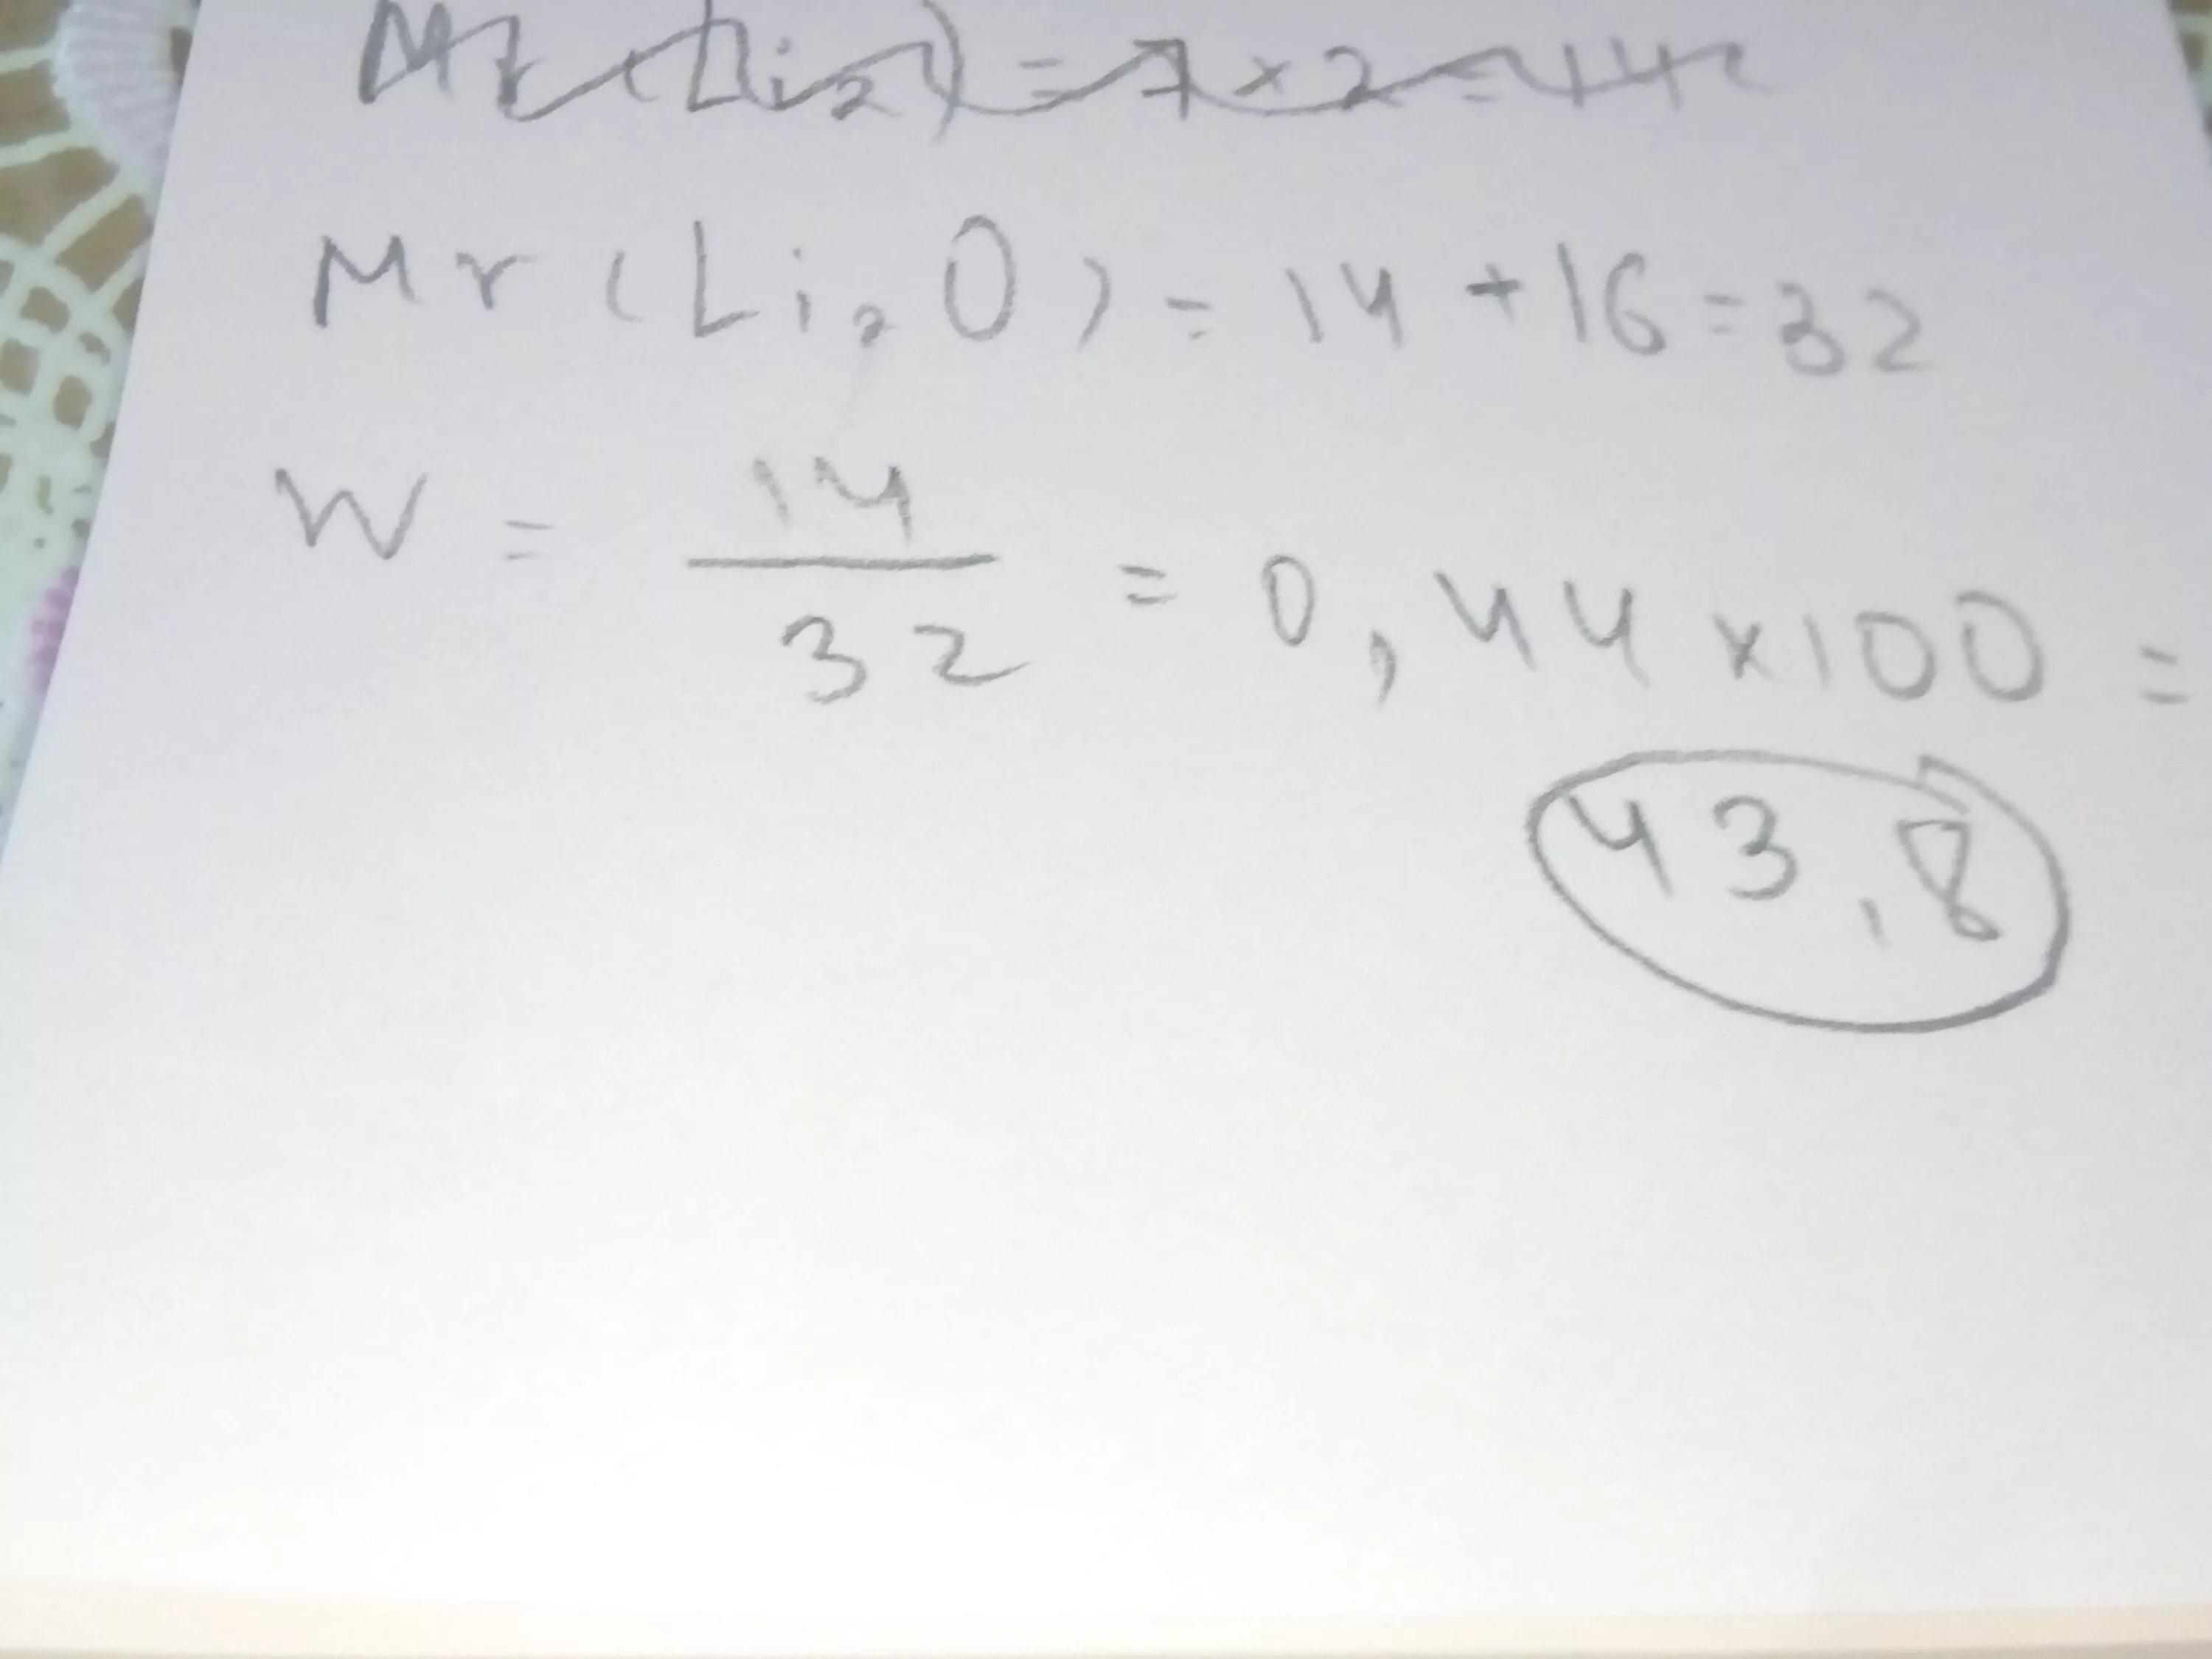 Mr (Li₂) = 7 × 2 = 14
Mr (Li₂O) = 14 + 16 = 32
W = 14/32 = 0,44 × 100 =
43,8